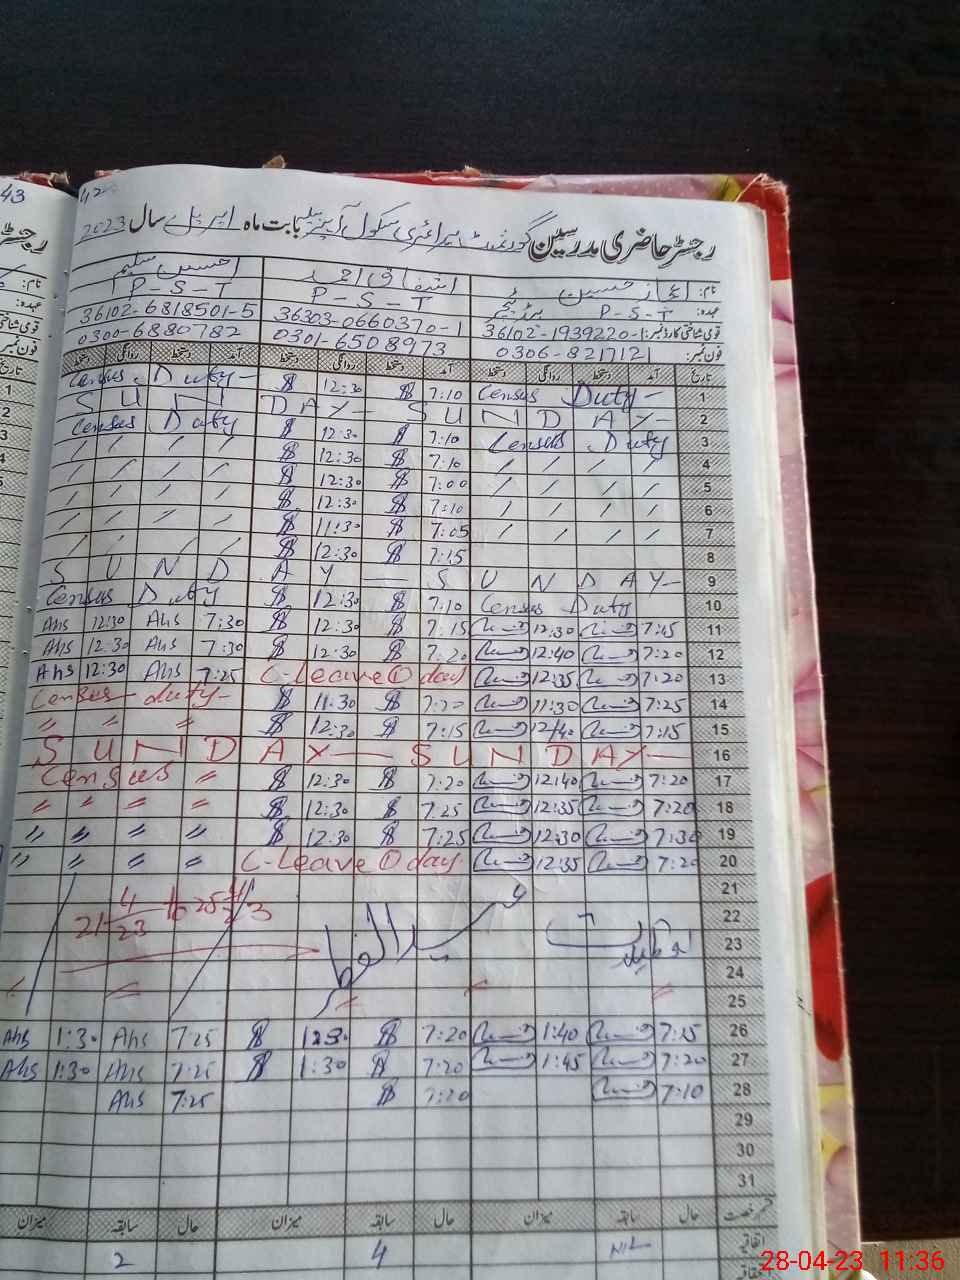 43
رجسٹر حاضری مدرسین گورنمنٹ پرائمری سکول بابت ماہ اپریل سال 2023
نام: اعجاز حسین اشفاق احمد احسن سلیم
عہدہ: P-S-T P-S-T P-S-T
قومی شناختی کارڈ نمبر: 36102-1939220-1 36303-0660370-1 36102-6818501-5
فون نمبر: 0306-8217121 0301-6508973 0300-6880782
تاریخ آمد دستخط روانگی دستخط آمد دستخط روانگی دستخط آمد دستخط روانگی دستخط
Census Duty - 12:30 7:10 Census Duty - 1
S U N D A Y - S U N D A Y - 2
Census Duty 12:30 7:10 Census Duty 3
/ / / / 12:30 7:10 / / / / 4
/ / / / 12:30 7:00 / / / / 5
/ / / / 12:30 7:10 / / / / 6
/ / / / 11:30 7:05 / / / / 7
/ / / / 12:30 7:15 8
S U N D A Y — S U N D A Y - 9
Census Duty 12:30 7:10 Census Duty 10
Ahs 12:30 Ahs 7:30 12:30 7:15 12:30 7:15 11
Ahs 12:30 Ahs 7:30 12:30 7:20 12:40 7:20 12
Ahs 12:30 Ahs 7:25 C-Leave ① day 12:35 7:20 13
Census duty - 11:30 7:20 11:30 7:25 14
" " " 12:30 7:15 12:40 7:15 15
S U N D A Y — S U N D A Y - 16
Census " 12:30 7:20 12:40 7:20 17
" " " " 12:30 7:25 12:35 7:20 18
" " " " 12:30 7:25 12:30 7:30 19
" " " " C-Leave ① day 12:35 7:20 20
21
21-4/23 to 25-4/23 عید الفطر 22
23
24
25
Ahs 1:30 Ahs 7:25 7:20 1:40 7:15 26
Ahs 1:30 Ahs 7:25 1:30 7:20 1:45 7:20 27
Ahs 7:25 7:20 7:10 28
29
30
31
قسم رخصت حال سابقہ میزان حال سابقہ میزان حال سابقہ میزان
اتفاقیہ NIL 4 2
28-04-23 11:36